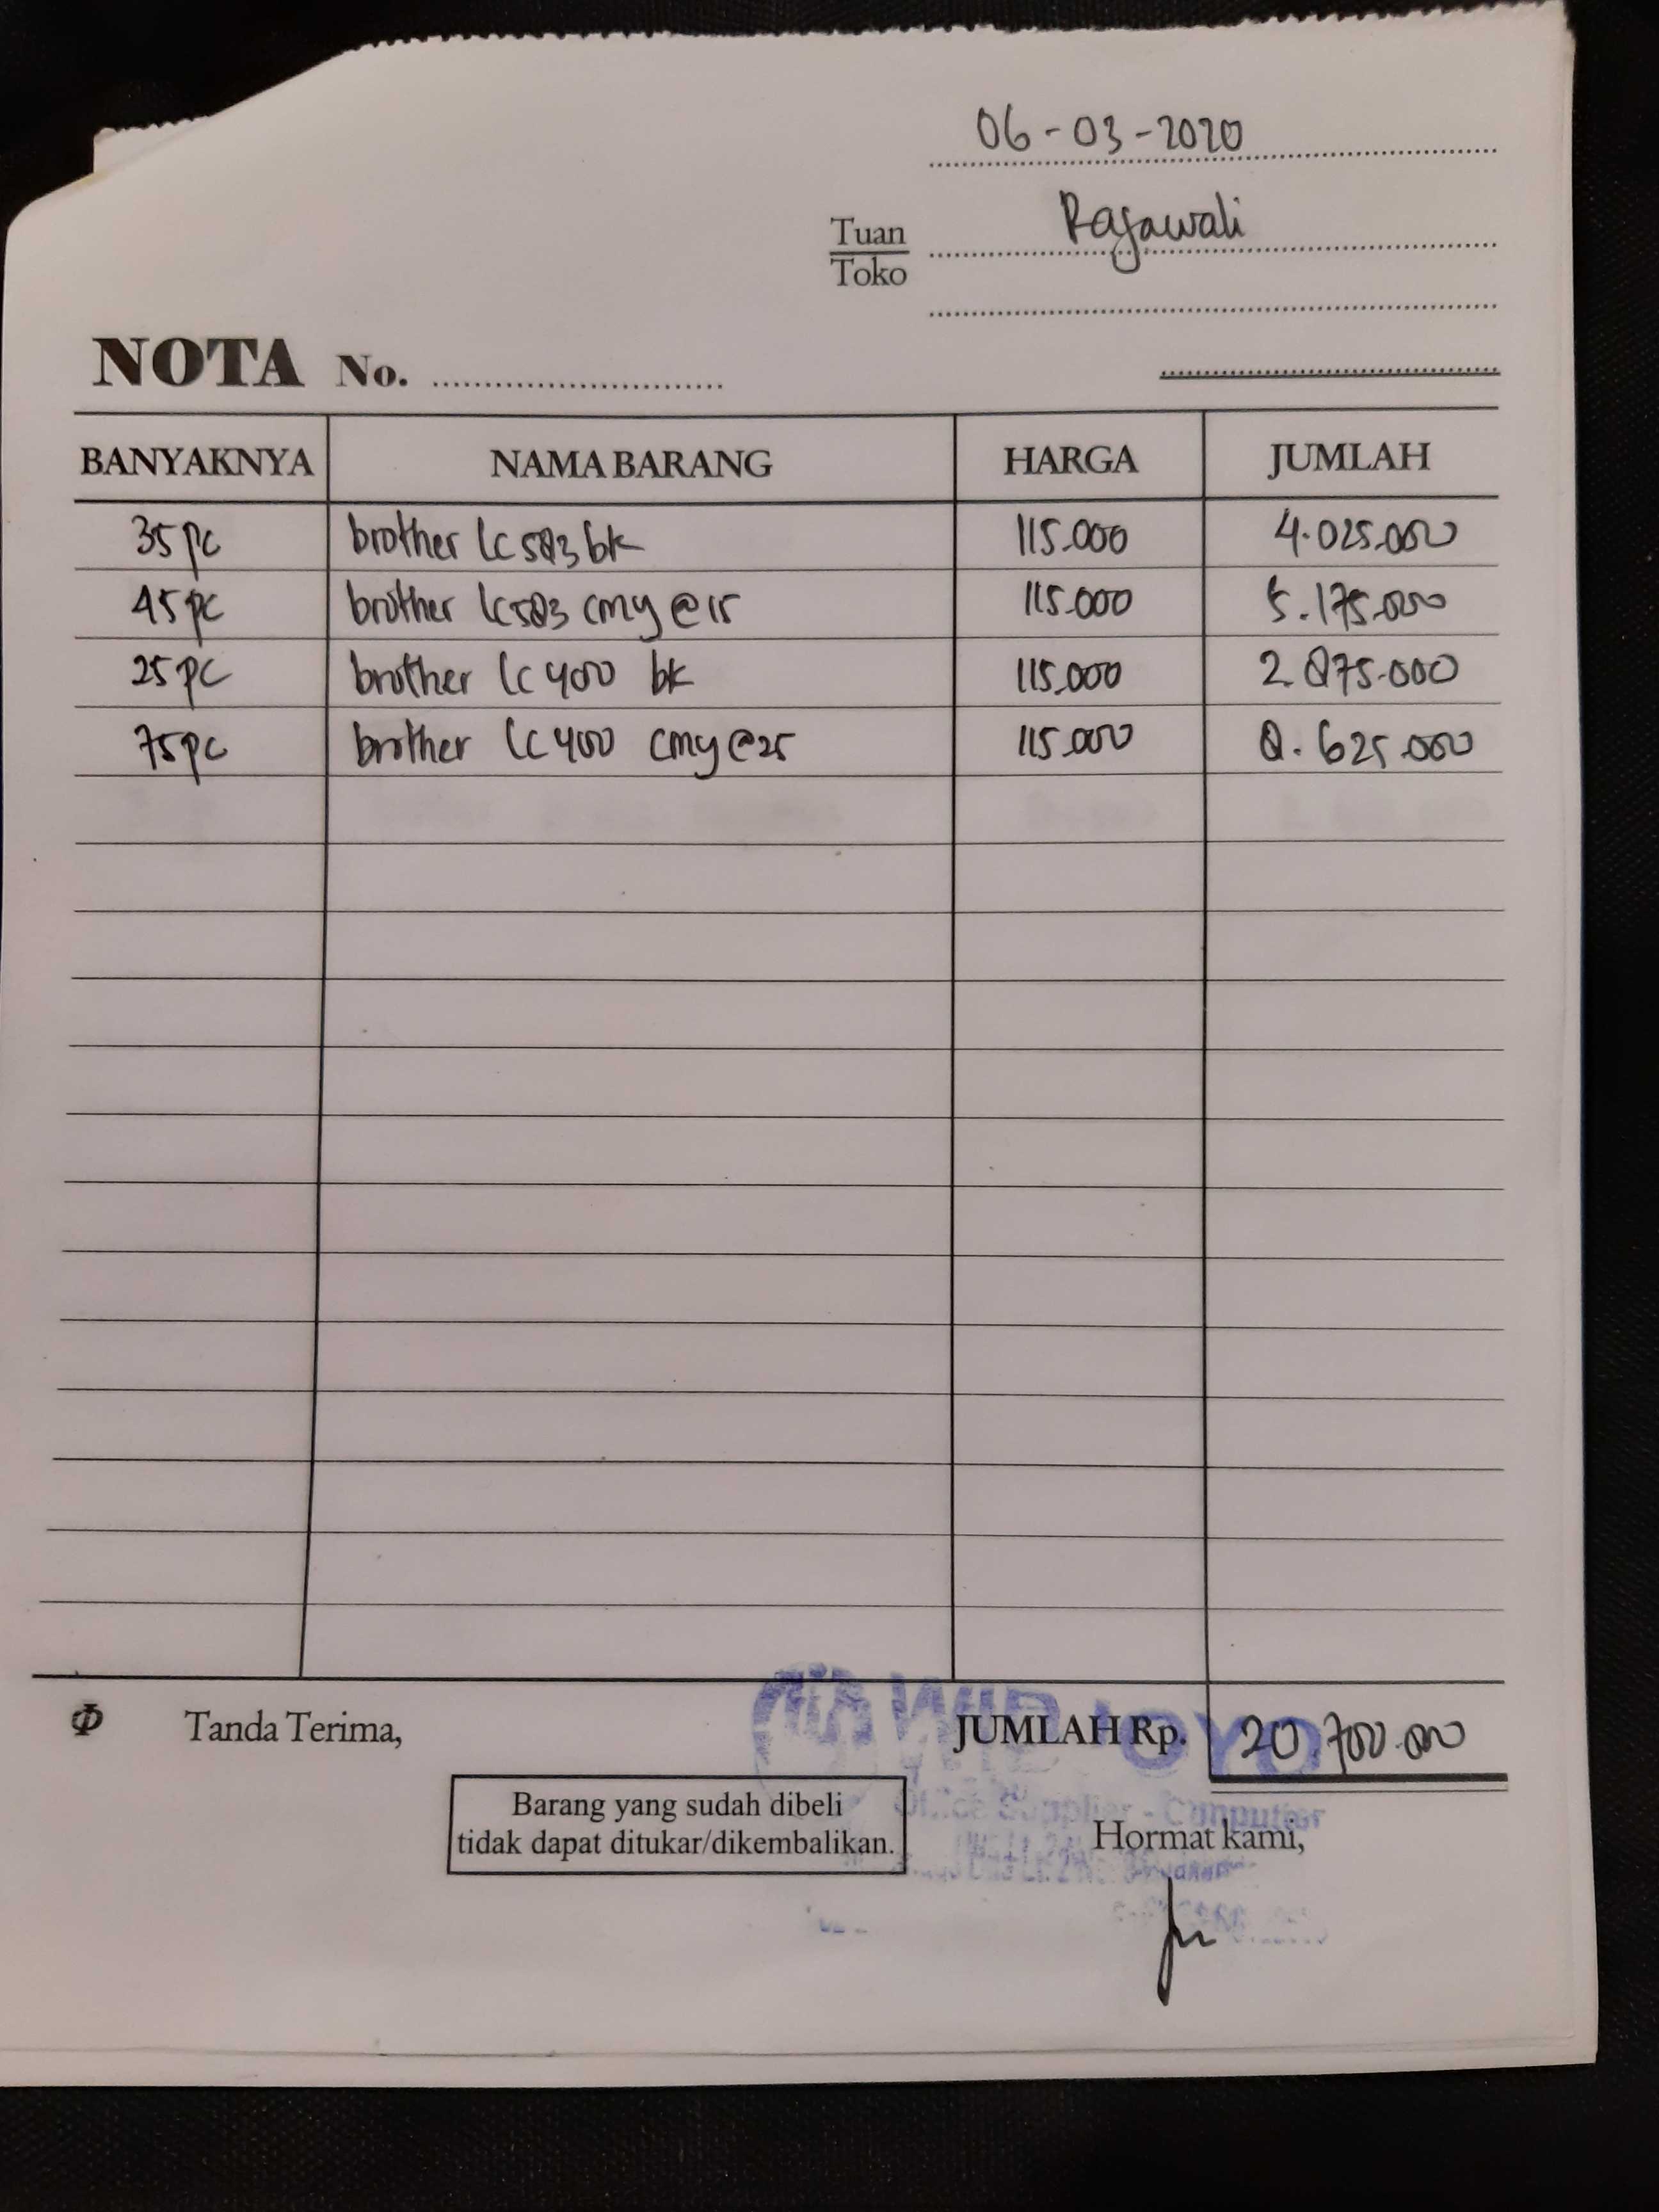 06-03-2020
Tuan Rajawali
Toko
NOTA No.
BANYAKNYA NAMA BARANG HARGA JUMLAH
35pc brother lc583bk 115.000 4.025.000
45pc brother lc583 cmy@15 115.000 5.175.000
25pc brother lc400 bk 115.000 2.875.000
75pc brother lc400 cmy@25 115.000 8.625.000
Φ Tanda Terima, JUMLAH Rp. 20.700.000
Barang yang sudah dibeli
tidak dapat ditukar/dikembalikan.
Office Supplier - Computer
Hormat kami,